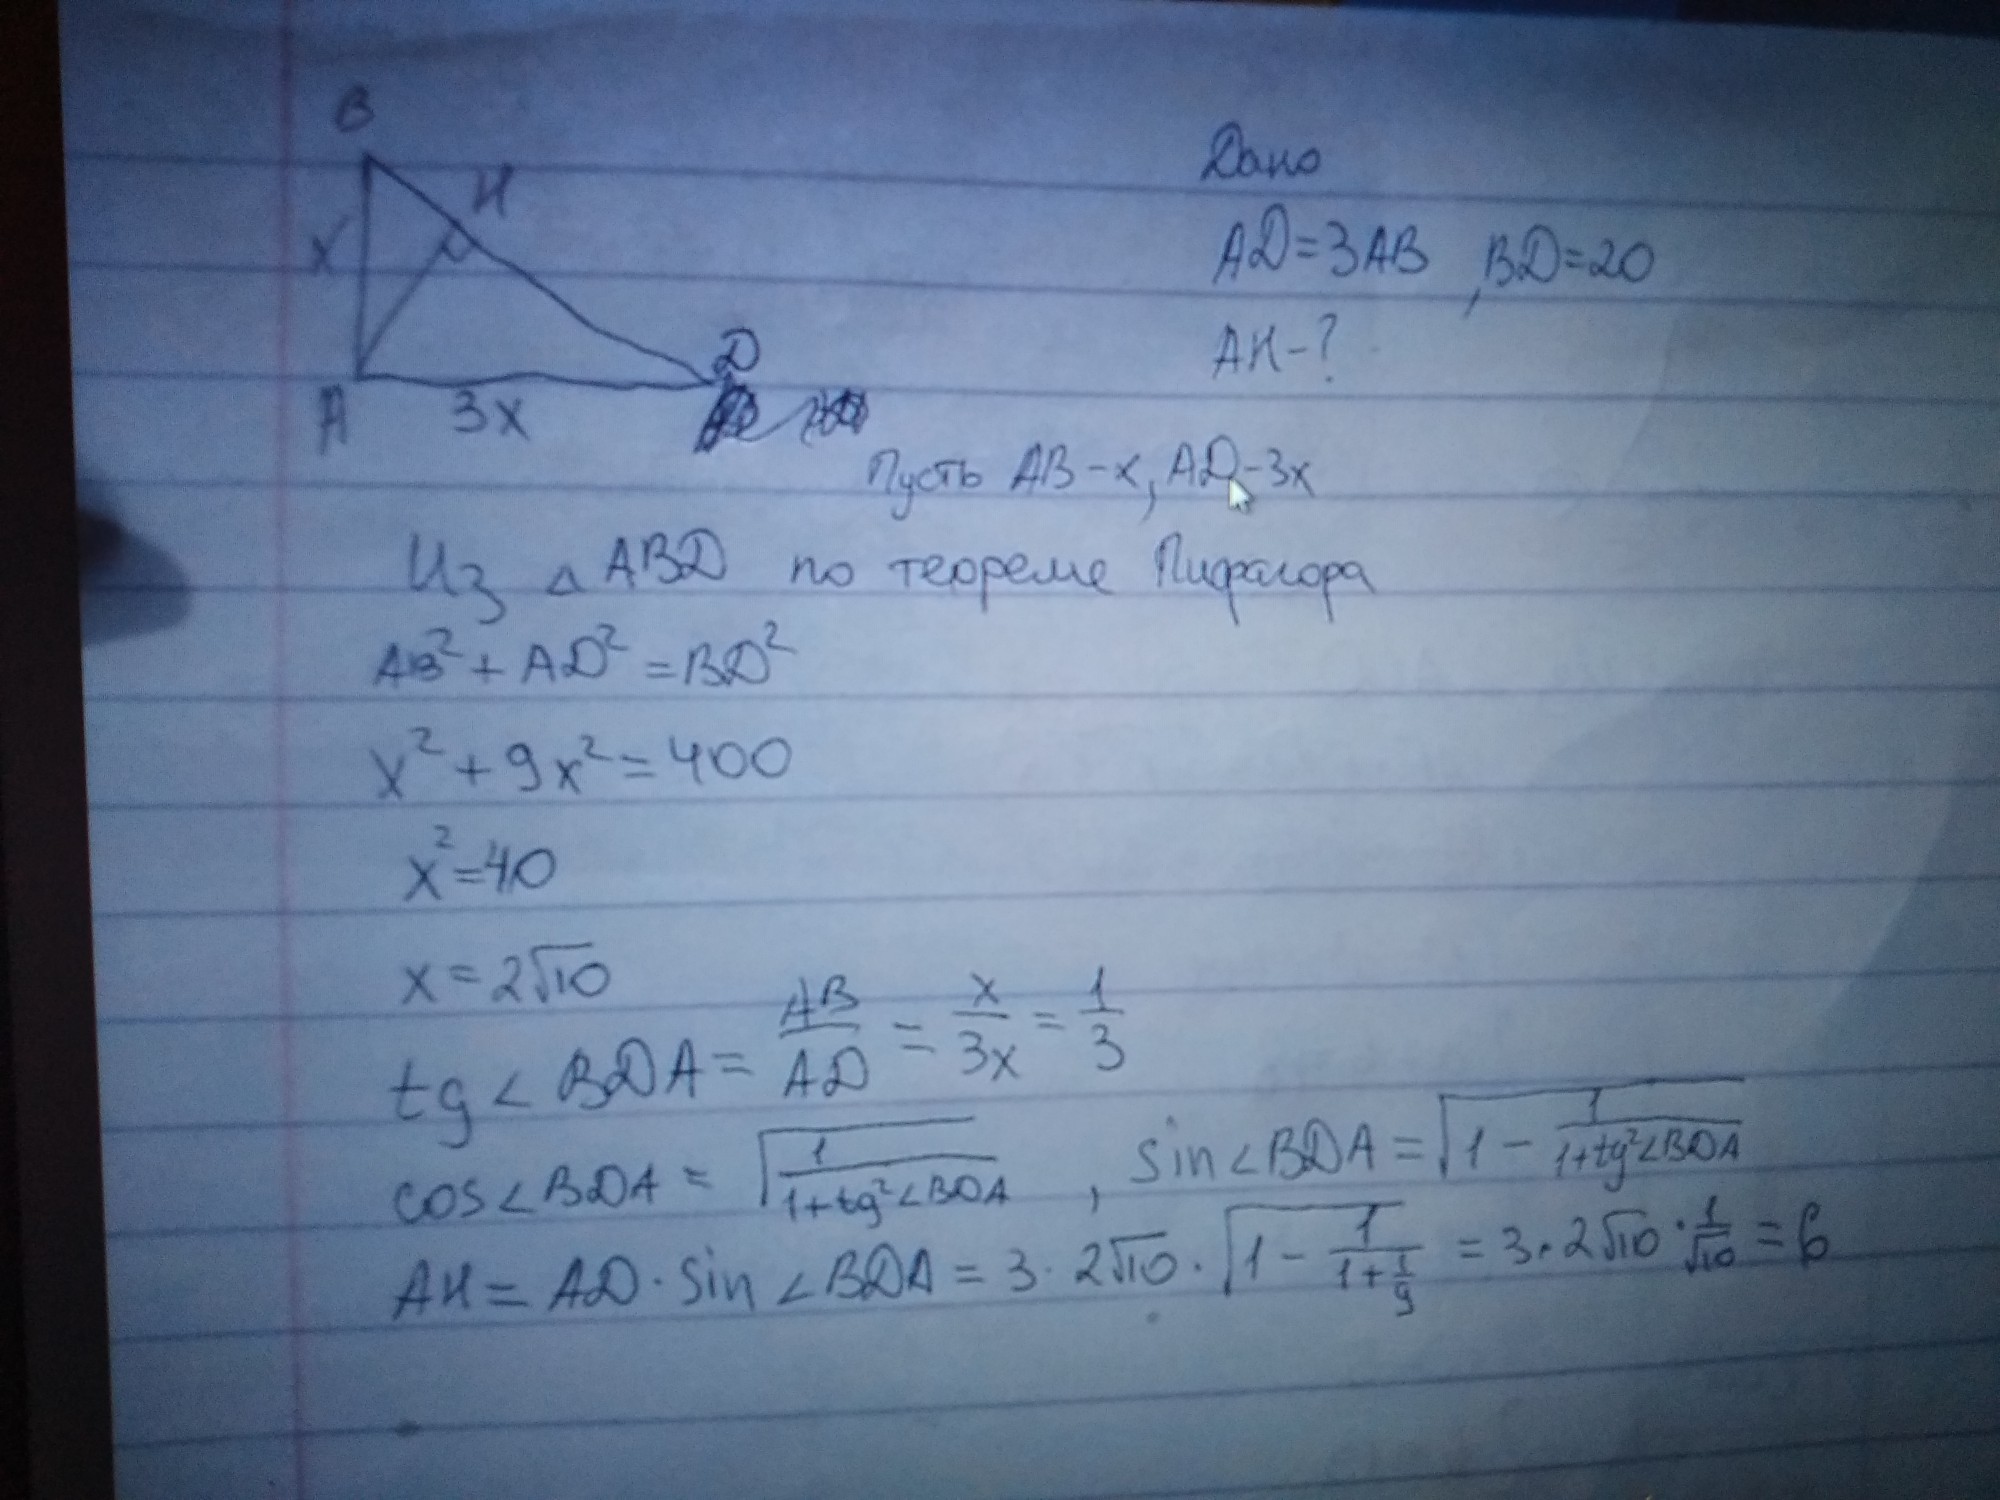 B
H
x
D
A 3x
Дано
AD=3AB, BD=20
AH-?
Пусть AB-x, AD-3x
Из △ABD по теореме Пифагора
AB²+AD²=BD²
x²+9x²=400
x²=40
x=2√10
tg<BDA=AB/AD=x/3x=1/3
cos<BDA=√(1/(1+tg²<BDA)), sin<BDA=√(1-1/(1+tg²<BDA))
AH=AD·sin<BDA=3·2√10·√(1-1/(1+1/9))=3·2√10·1/√10=6